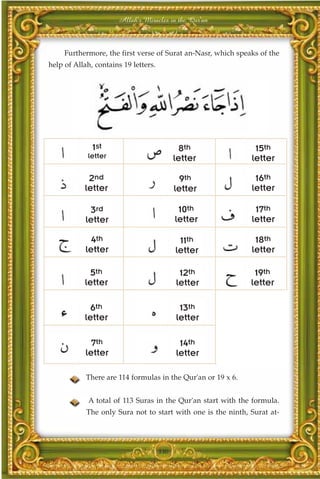 Allah's Miracles in the Qur'an
Furthermore, the first verse of Surat an-Nasr, which speaks of the
help of Allah, contains 19 letters.
إِذَا جَاءَ نَصْرُ اللَّهِ وَالْفَتْحُ
ا 1st letter ص 8th letter ا 15th letter
ذ 2nd letter ر 9th letter ل 16th letter
ا 3rd letter ا 10th letter ف 17th letter
ج 4th letter ل 11th letter ت 18th letter
ا 5th letter ل 12th letter ح 19th letter
ء 6th letter ه 13th letter
ن 7th letter و 14th letter
There are 114 formulas in the Qur'an or 19 x 6.
A total of 113 Suras in the Qur'an start with the formula.
The only Sura not to start with one is the ninth, Surat at-